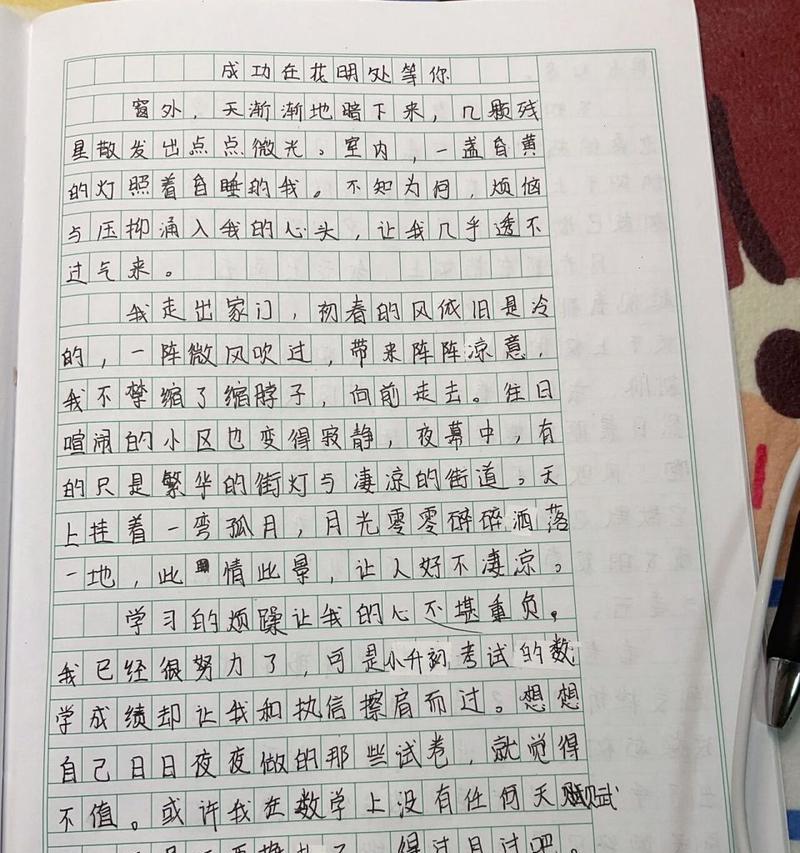 成功在花明处等你
窗外，天渐渐地暗下来，几颗残
星散发出点点微光。室内，一盏昏黄
的灯照着自睡的我。不知为何，烦恼
与压抑涌入我的心头，让我几乎透不
过气来。
我走出家门，初春的风依旧是冷
的，一阵微风吹过，带来阵阵凉意，
我不禁缩了缩脖子，向前走去。往日
喧闹的小区也变得寂静，夜幕中，有
的只是繁华的街灯与凄凉的街道。天
上挂着一弯孤月，月光零零碎碎洒落
一地，此情此景，让人好不凄凉。
学习的烦躁让我的心不堪重负。
我已经很努力了，可是小升初考试的数
学成绩却让我和执信擦肩而过。想想
自己日日夜夜做的那些试卷，就觉得
不值。或许我在数学上没有任何天赋
得过且过吧。